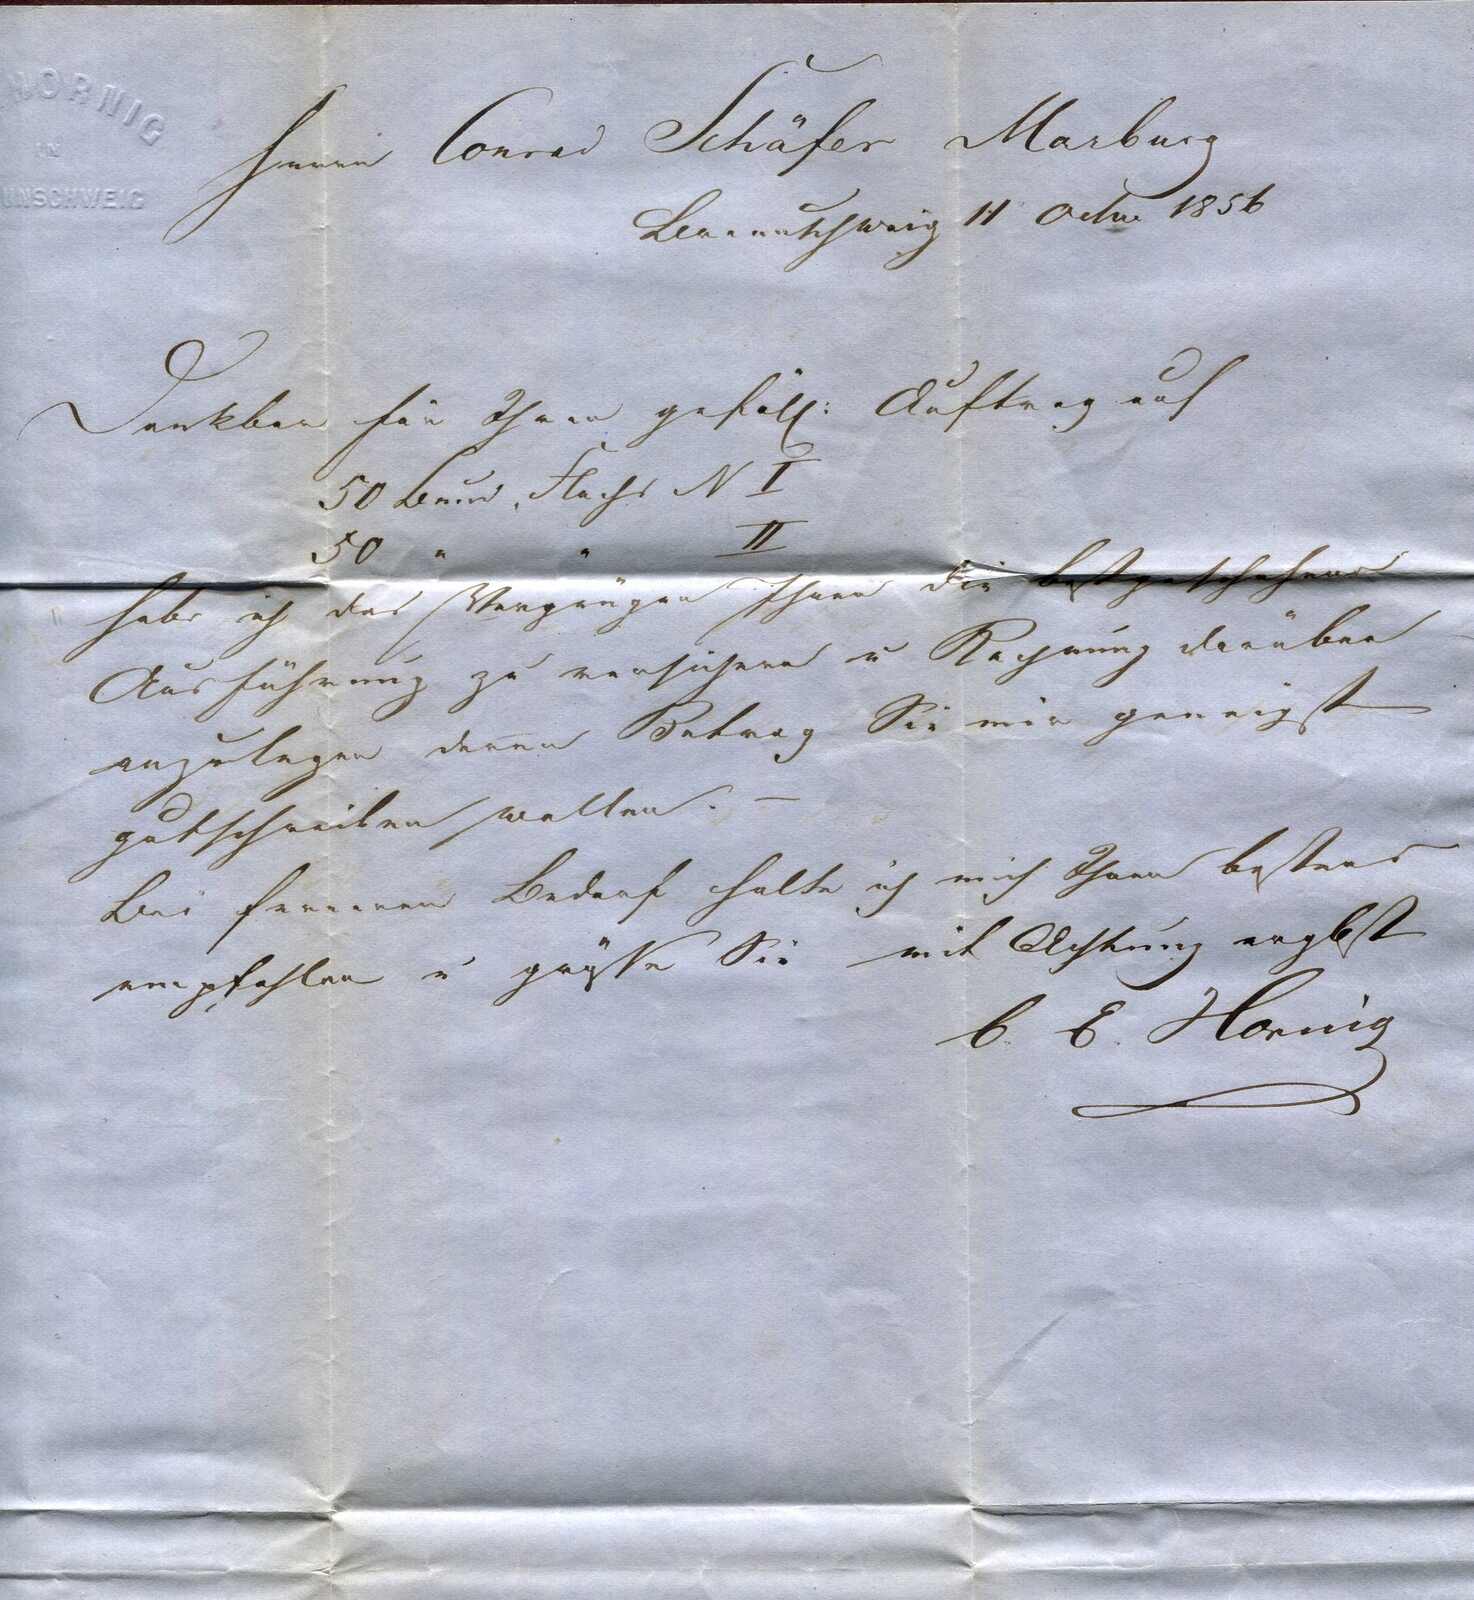 HORNIG
IN
UNSCHWEIG
Herrn Conrad Schäfer Marburg
Braunschweig 11 Octbr 1856
Dankbar für Ihren gefäll: Auftrag auf
50 Bund Flachs N I
50 " " II
habe ich das Vergnügen Ihnen die bestgeschehene
Ausführung zu versichern u Rechnung darüber
anzulegen deren Betrag Sie mir geneigst
gutschreiben wollen. —
Bei fernerem Bedarf halte ich mich Ihnen bestens
empfohlen u grüße Sie mit Achtung ergbst
C. E. Hornig